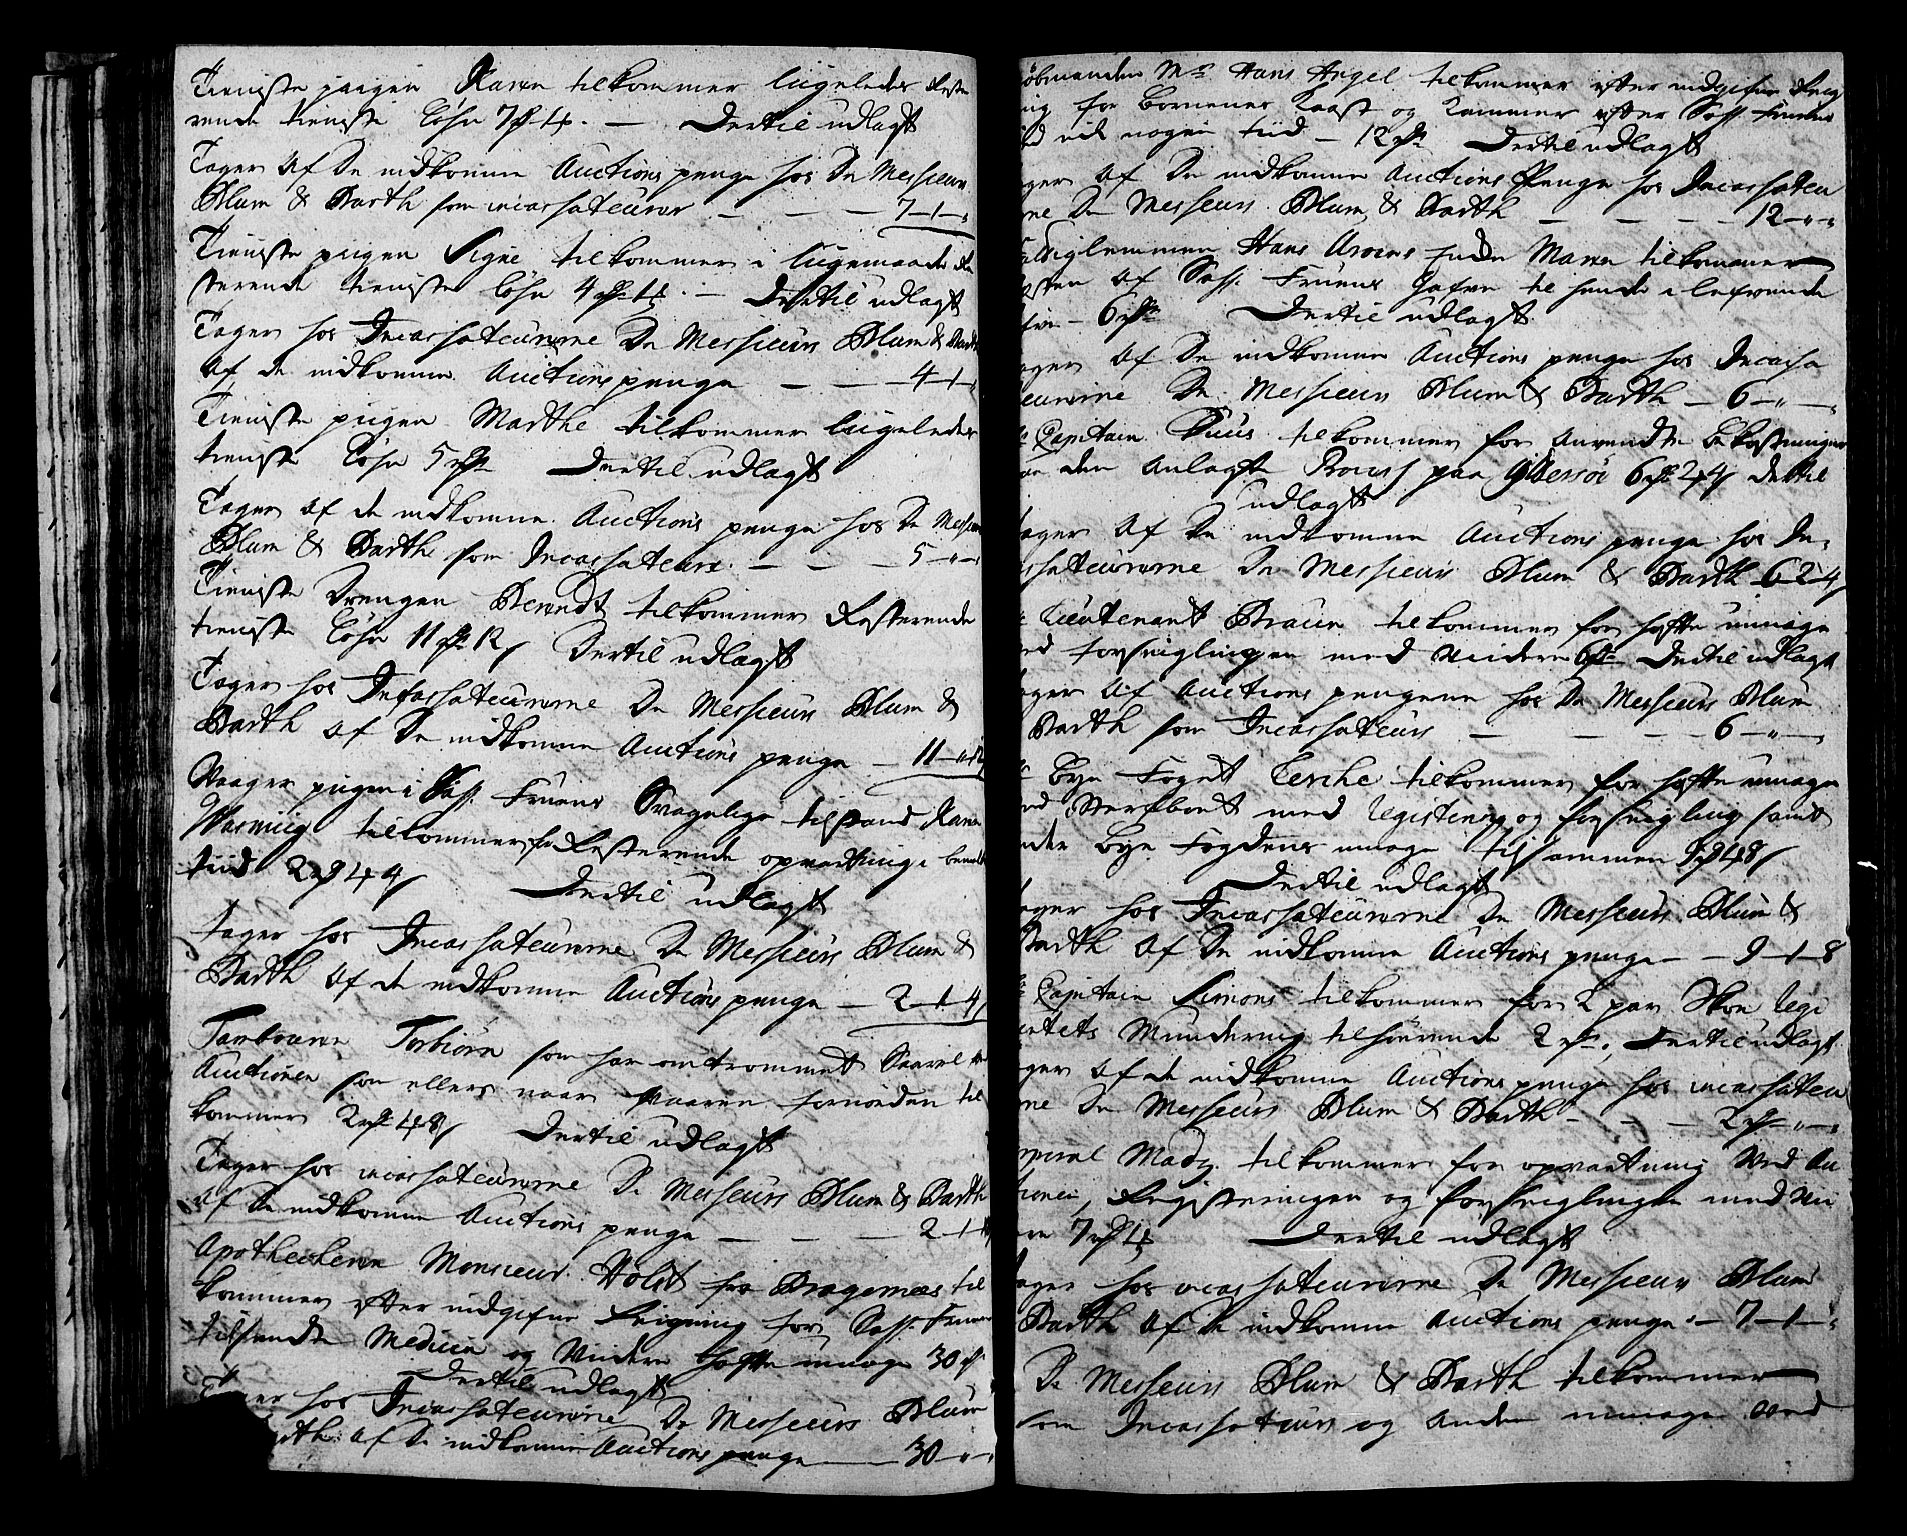 Tieniste pigen Karen tilkommer liigeledes Reste
rende tieniste Løhn 7 rd 1 ort. — Dertil udlagt
Tager af De indkomne Auctions penge hos De Messieurs
Blum & Barth som incassateurer — — — 7-1-"
Tieniste pigen Signe tilkommer i liigemaade Re
sterende tieniste Løhn 4 rd 1 ort. — Dertil udlagt
Tager hos Incassateurerne De Messieurs Blum & Barth
af de indkomne Auctions penge — — — 4-1-"
Tieniste pigen Marthe tilkommer liigeledes
tieniste Løhn 5 rd Dertil udlagt
Tager af de indkomne Auctions penge hos De Messieurs
Blum & Barth som Incassateurer — — — 5-"-"
Tieniste Drengen Berndt tilkommer Resterende
tieniste Løhn 11 rd 12 s Dertil udlagt
Tager hos Incassateurerne De Messieurs Blum &
Barth af De indkomne Auctions penge — 11-"-12
Vaage pigen i Sal. Fruens Svagelige tilstand Karen
tilkommer for Resterende opvartning i bemelte
tiid 2 rd 1 ort 4 s Dertil udlagt
Tager hos Incassateurerne De Messieurs Blum &
Barth af de indkomne Auctions penge — 2-1-4
Tambouren Torbiörn som har omtrommet Saavel
Auctionen som ellers naar været fornøden til
kommer 2 rd 1 ort 8 s Dertil udlagt
Tager hos incassateurerne De Messieurs Blum & Barth
af De indkomne Auctions penge — — — 2-1-8
Apothecheren Monsieur Holst fra Bragernæs til
kommer efter indgifne Reigning for Sal. Fruen
tilsendte Medicin og Viidere hafte umage 30 rd
Dertil udlagt
Tager hos Incassateurerne De Messieurs Blum
& Barth af De indkomne Auctions penge — 30-"-"
Kiøbmanden Mr Hans Angel tilkommer efter indgifne Reig
ning for Børnenes Kaast og Kammer efter Sal. Fruens
Død udi nogen tiid — 12 rd Dertil udlagt
Tager af De indkomne Auctions Penge hos Incassateu
rerne De Messieurs Blum & Barth — — — 12-"-"
Hans Maren tilkommer
Resten af Sal. Fruens Gafve til hende i lefvende
Lifve — 6 rd Dertil udlagt
Tager af De indkomne Auctions penge hos Incassa
teurerne De Messieurs Blum & Barth — 6-"-"
Hr Capitain Kuus tilkommer for anvendte Bekostninger
paa den anlagte paa 6 rd 2 ort 4 s dertil
udlagt
Tager af De indkomne Auctions penge hos In
cassateurerne De Messieurs Blum & Barth 6-2-4
Hr Lieutenant Braun tilkommer for hafte umage
ved Forseiglingen med Viidere 6 rd Dertil udlagt
Tager af Auctions pengene hos De Messieurs Blum
& Barth som Incassateurs — — — 6-"-"
Hr Bye Foget Lerche tilkommer for hafte umage
ved Sterfboet med Registering og forseigling samt
under Bye Fogdens umage tilsammen 9 rd 1 ort 8 s
Dertil udlagt
Tager hos Incassateurerne De Messieurs Blum &
Barth af De indkomne Auctions penge — — 9-1-8
Hr Capitain Simons tilkommer for 2 par Skoe Regi
mentets Mundering tilhørende 2 rd, Dertil udlagt
Tager af de indkomne Auctions penge hos incassateu
rerne De Messieurs Blum & Barth — — — 2 rd-"-"
Corporal Madz. tilkommer for opvartning Ved Au
ctionen, Registeringen og Forseiglingen med Vii
dere 7 rd 1 ort Dertil udlagt
Tager hos incassateurerne De Messieurs Blum
& Barth af De indkomne Auctions penge — 7-1-"
De Messieurs Blum & Barth tilkommer
som Incassateurs og anden umage ved